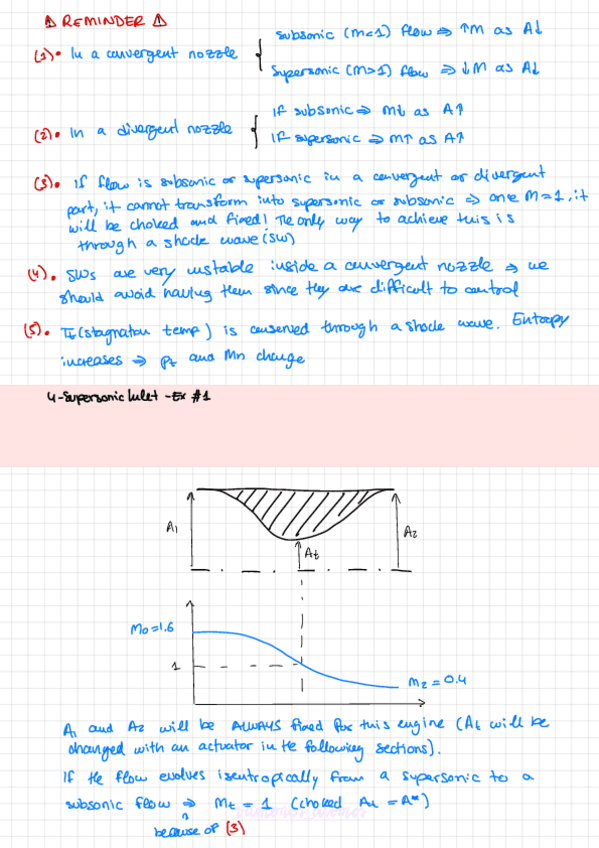 ⚠ REMINDER ⚠
(1)• In a convergent nozzle { subsonic (M<1) flow ⇒ ↑M as A↓
supersonic (M>1) flow ⇒ ↓M as A↓
(2)• In a divergent nozzle { If subsonic ⇒ M↓ as A↑
If supersonic ⇒ M↑ as A↑
(3)• If flow is subsonic or supersonic in a convergent or divergent
part, it cannot transform into supersonic or subsonic ⇒ one M=1, it
will be choked and fixed! The only way to achieve this is
through a shock wave (SW)
(4)• SWs are very unstable inside a convergent nozzle ⇒ we
should avoid having them since they are difficult to control
(5)• Tt (stagnation temp) is conserved through a shock wave. Entropy
increases ⇒ pt and Mn change
4-Supersonic Inlet - Ex #1
A1
At
A2
M0=1.6
1
M2=0.4
A1 and A2 will be ALWAYS fixed for this engine (At will be
changed with an actuator in the following sections).
If the flow evolves isentropically from a supersonic to a
subsonic flow ⇒ Mt = 1 (choked At = A*)
because of (3)